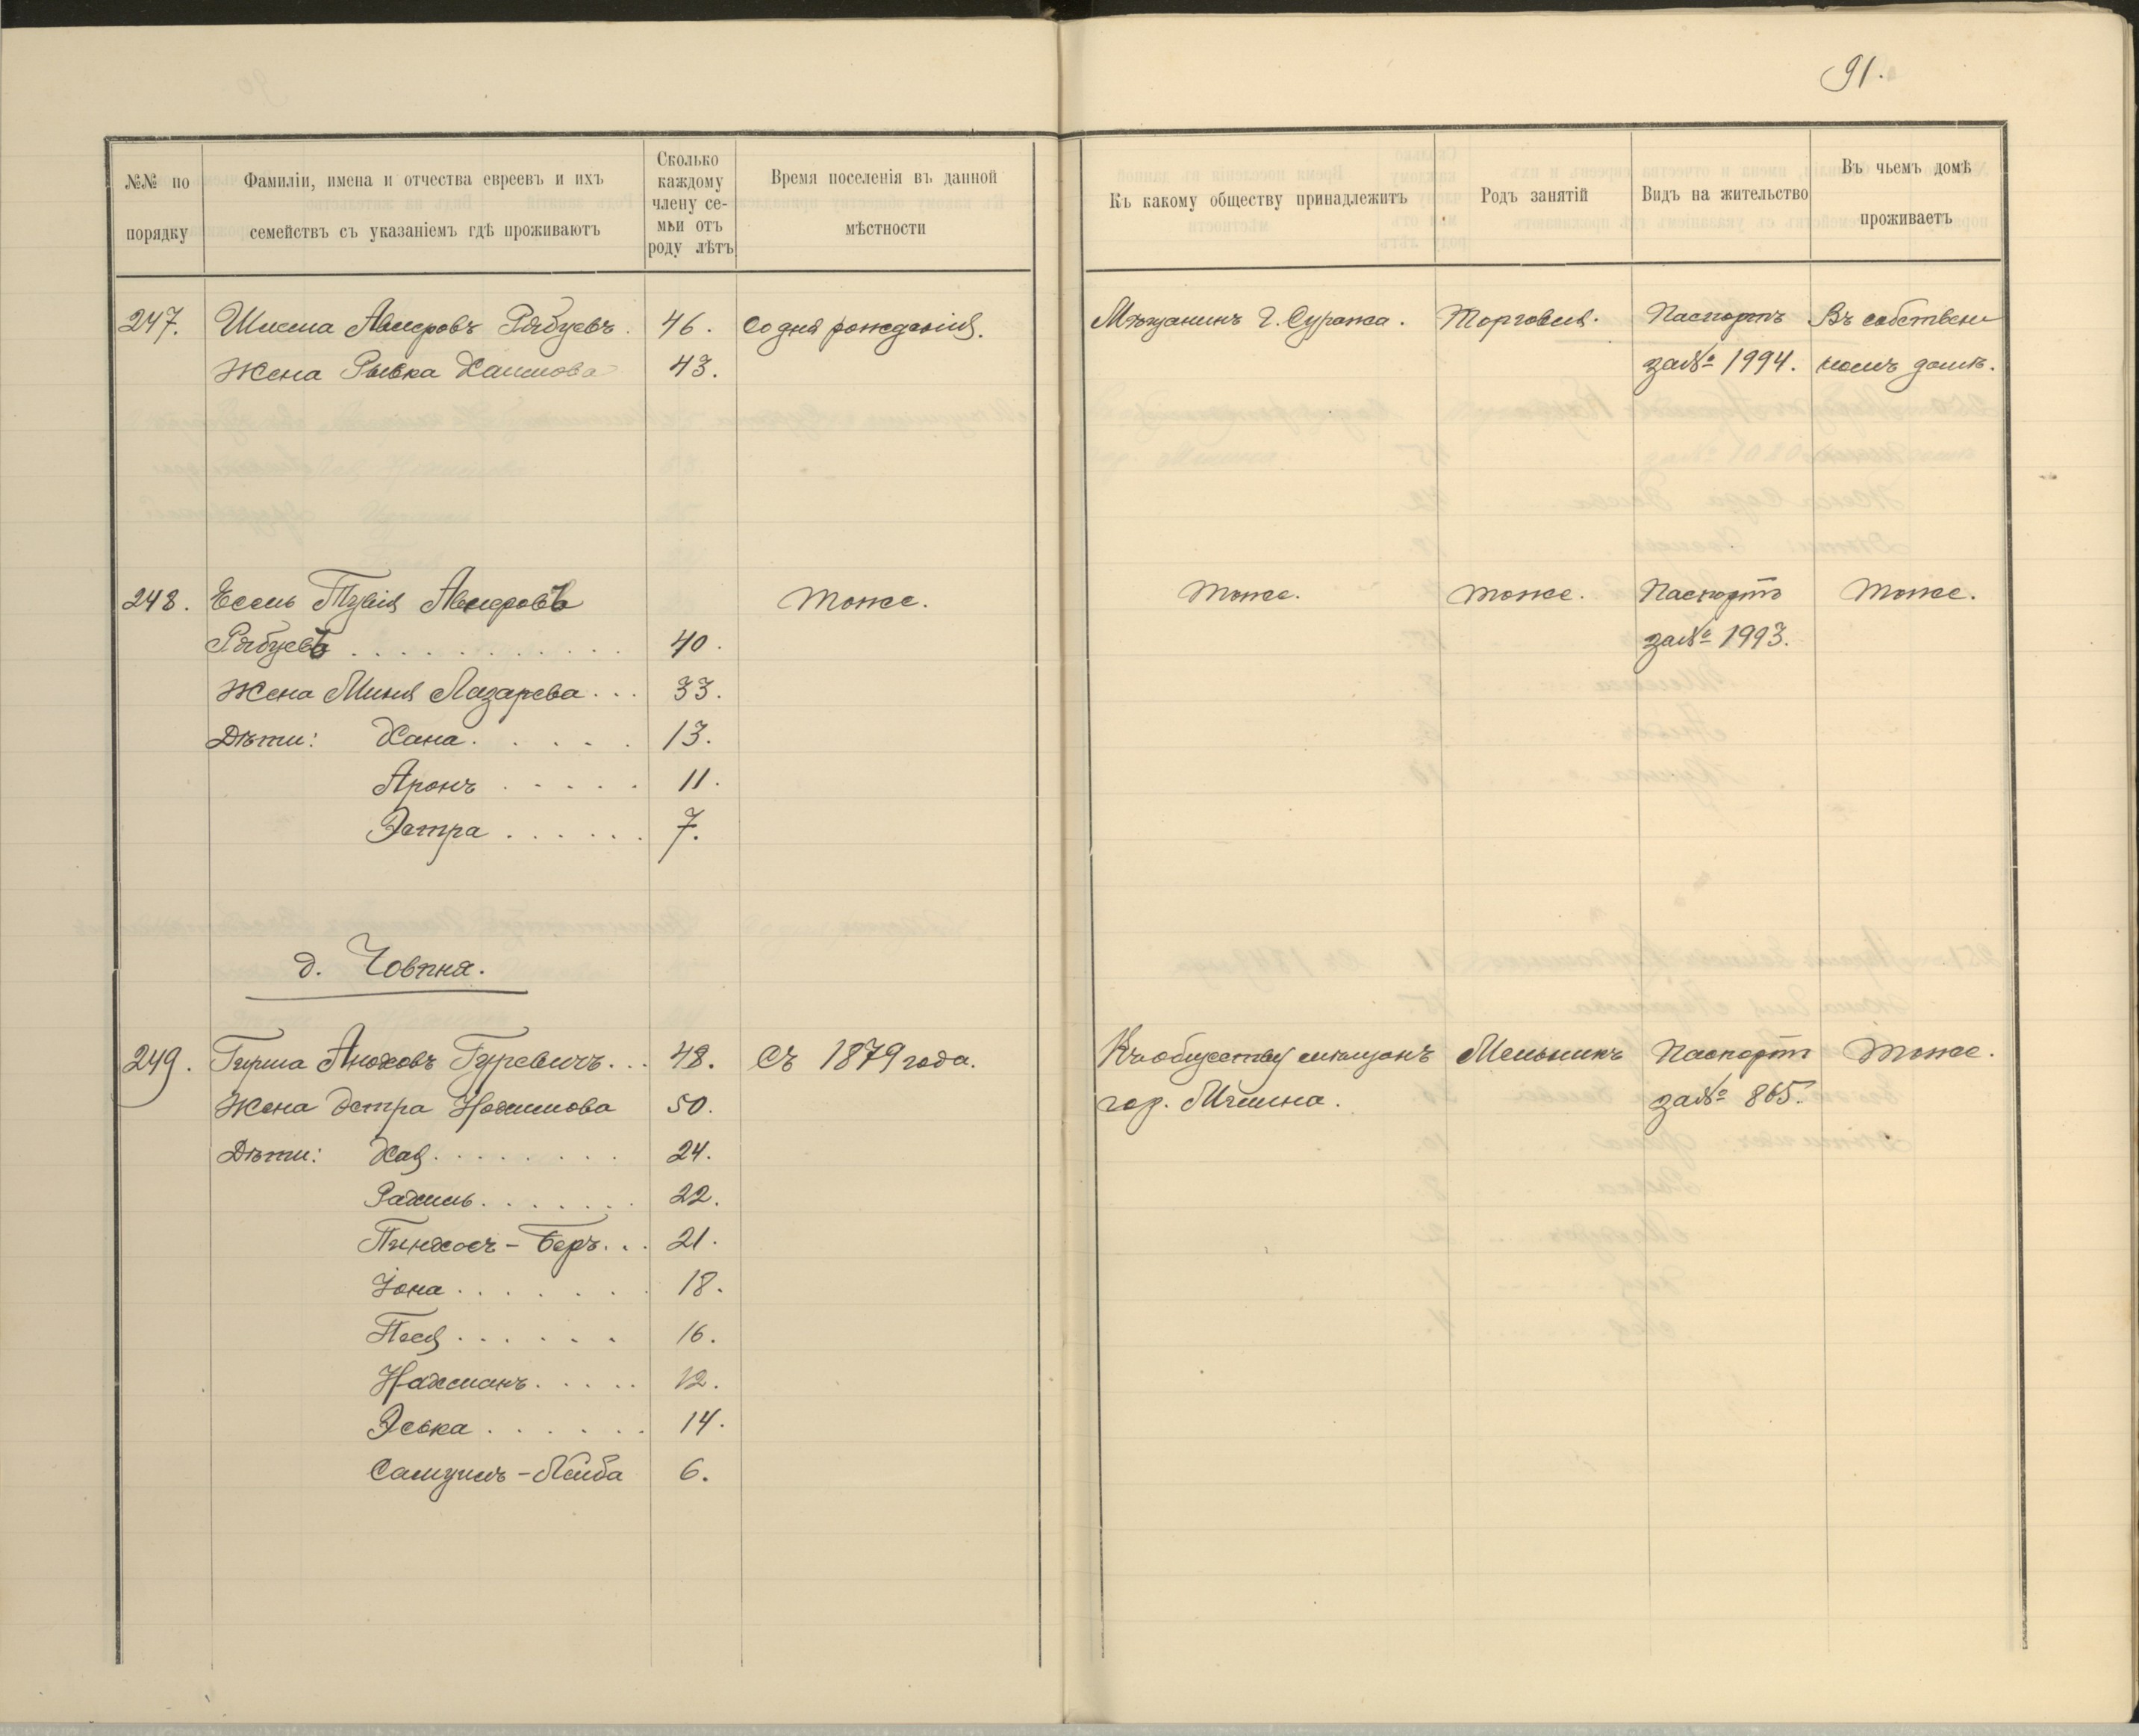 91.
№№ по порядку
Фамиліи, имена и отчества евреевъ и ихъ семействъ съ указаніемъ гдѣ проживаютъ
Сколько каждому члену се-мьи отъ роду лѣтъ
Время поселенія въ данной мѣстности
Къ какому обществу принадлежитъ
Родъ занятій
Видъ на жительство
Въ чьемъ домѣ проживаетъ
247. Шлема Авнеровъ Рябуевъ. 46. Со дня рожденія. Мѣщанинъ г. Суража. Торговля. Паспортъ Въ собствен
Жена Рывка Хаимова 43. за № 1994. номъ домѣ.
248. Есель Тувія Авнеровъ Тоже. Тоже. Тоже. Паспортъ Тоже.
Рябуевъ . . . . . . . . . . . 40. за № 1993.
Жена Миня Лазарева . . . 33.
Дѣти: Хана. . . . . . 13.
Аронъ . . . . . 11.
Эстра . . . . . . 7.
д. Човпня.
249. Гирша Аноховъ Гуревичъ. . . 48. Съ 1879 года. Къ обществу мѣщанъ Мельникъ Паспортъ Тоже.
Жена Эстра Нохимова 50. гор. Мглина. за № 865.
Дѣти: Хая. . . . . . . . . 24.
Рахиль. . . . . . . 22.
Пинхосъ-Беръ. . . 21.
Іона . . . . . . . 18.
Песя . . . . . . 16.
Нахманъ. . . . . 12.
Эська . . . . . . 14.
Самуилъ-Лейба 6.